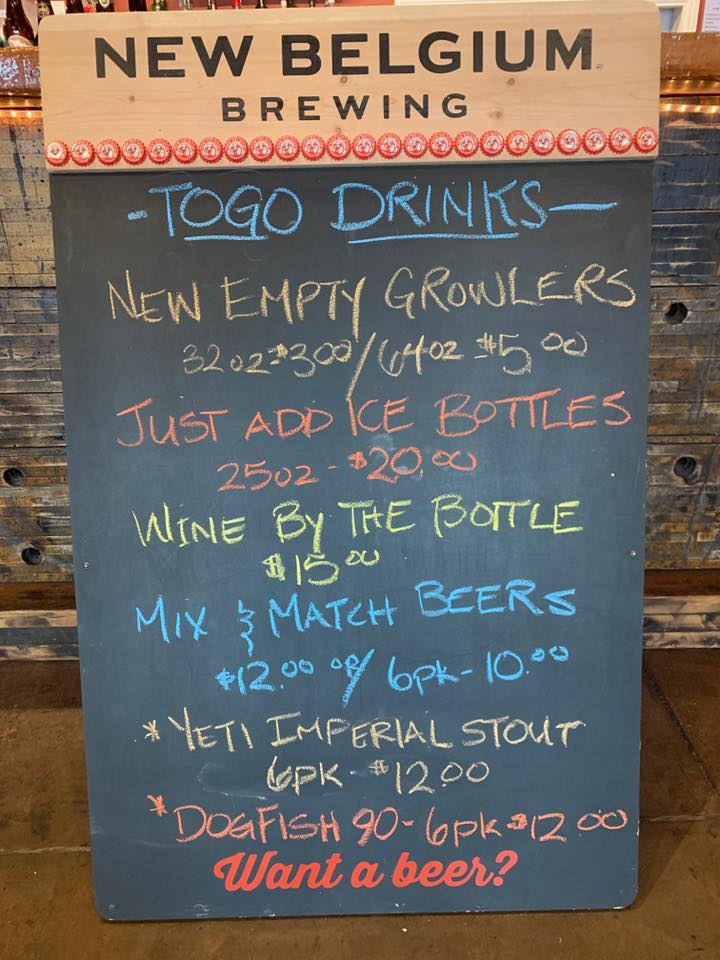 NEW BELGIUM
BREWING
-TOGO DRINKS-
NEW EMPTY GROWLERS
32oz $3.00 / 64oz $5.00
JUST ADD ICE BOTTLES
25oz - $20.00
WINE By THE BOTTLE
$15.00
MIX & MATCH BEERS
$12.00 or/ 6pk - 10.00
* YETI IMPERIAL STOUT
6PK - $12.00
* DOGFISH 90 - 6pk $12.00
Want a beer?